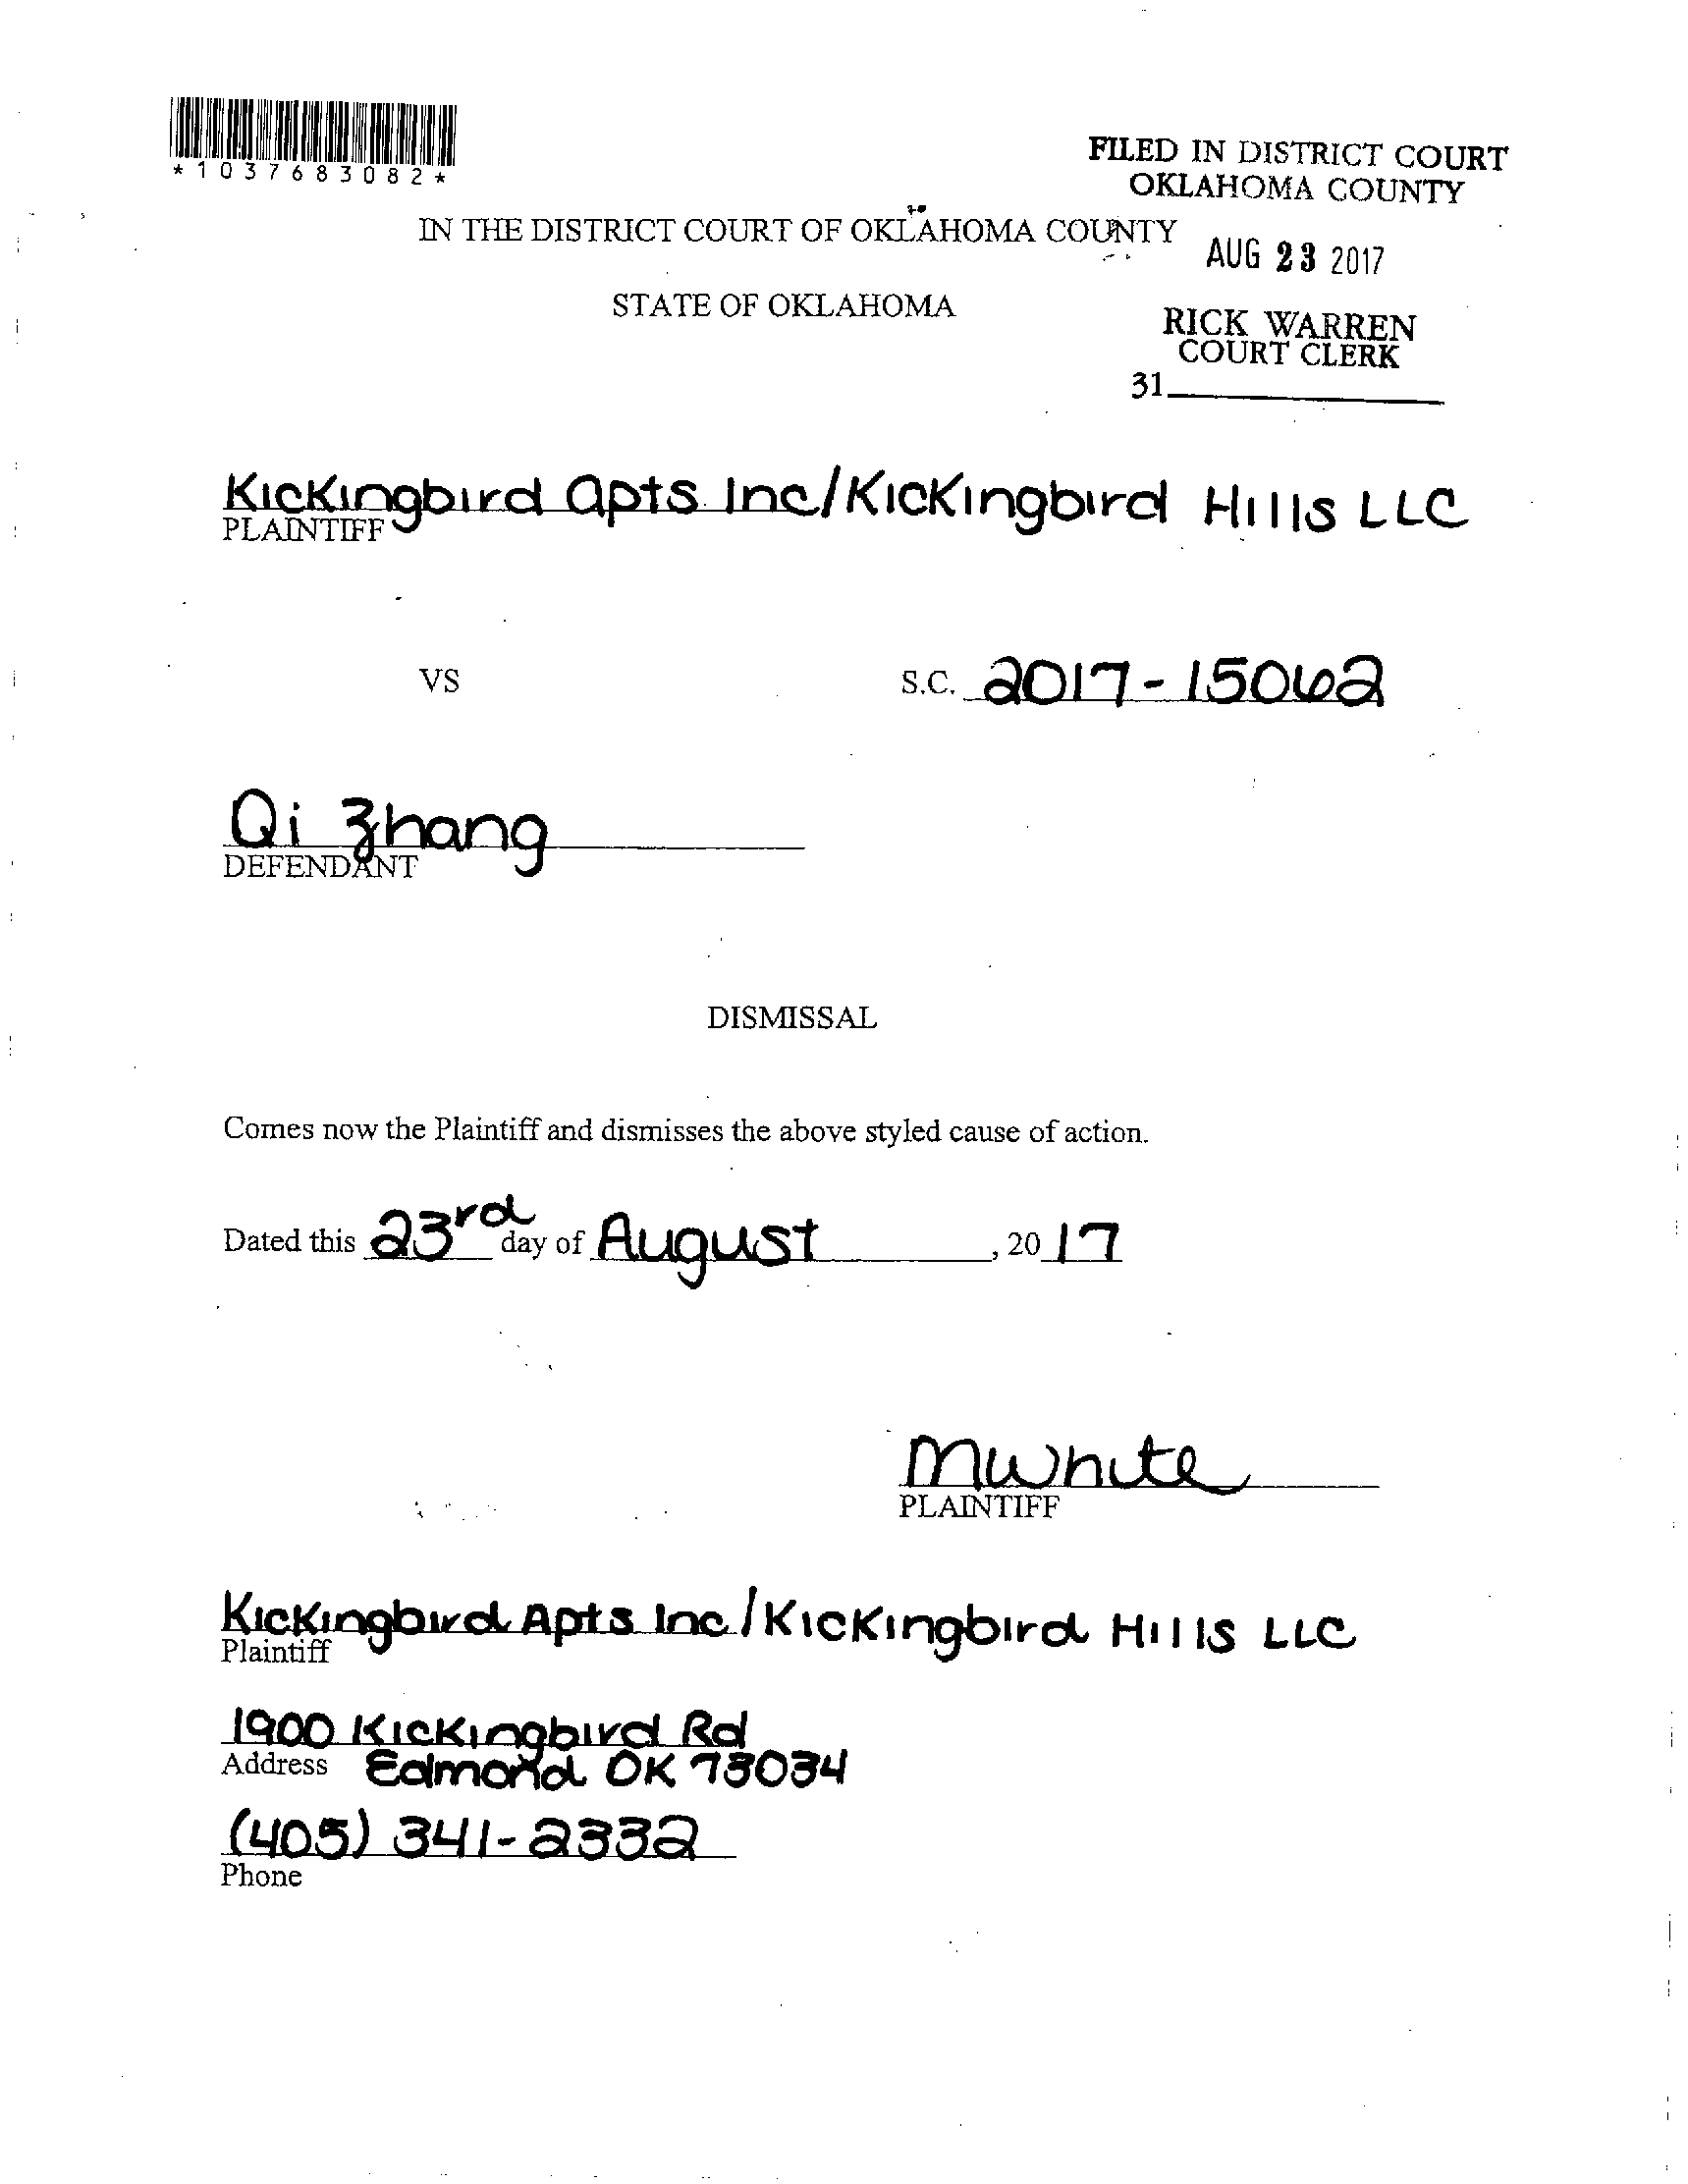 *1037683082*
FILED IN DISTRICT COURT
OKLAHOMA COUNTY
IN THE DISTRICT COURT OF OKLAHOMA COUNTY
AUG 23 2017
STATE OF OKLAHOMA
RICK WARREN
COURT CLERK
31
Kickingbird Apts Inc/Kickingbird Hills LLC
PLAINTIFF
VS
S.C. 2017-15062
Qi Zhang
DEFENDANT
DISMISSAL
Comes now the Plaintiff and dismisses the above styled cause of action.
Dated this 23rd day of August, 2017
MWhite
PLAINTIFF
Kickingbird Apts Inc/Kickingbird Hills LLC
Plaintiff
1900 Kickingbird Rd
Address Edmond OK 73034
(405) 341-2332
Phone